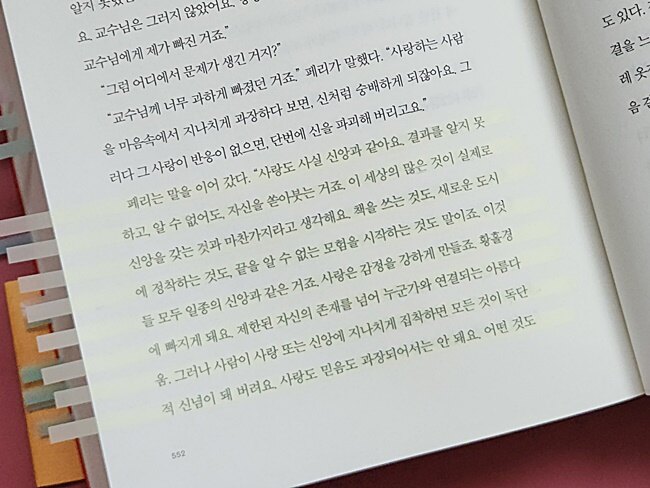 알지 못했
요. 교수님은 그러지 않았어요.
교수님에게 제가 빠진 거죠.”
“그럼 어디에서 문제가 생긴 거지?”
“교수님께 너무 과하게 빠졌던 거죠.” 페리가 말했다. “사랑하는 사람
을 마음속에서 지나치게 과장하다 보면, 신처럼 숭배하게 되잖아요. 그
러다 그 사랑이 반응이 없으면, 단번에 신을 파괴해 버리고요.”
페리는 말을 이어 갔다. “사랑도 사실 신앙과 같아요. 결과를 알지 못
하고, 알 수 없어도, 자신을 쏟아붓는 거죠. 이 세상의 많은 것이 실제로
신앙을 갖는 것과 마찬가지라고 생각해요. 책을 쓰는 것도, 새로운 도시
에 정착하는 것도, 끝을 알 수 없는 모험을 시작하는 것도 말이죠. 이것
들 모두 일종의 신앙과 같은 거죠. 사랑은 감정을 강하게 만들죠. 황홀경
에 빠지게 돼요. 제한된 자신의 존재를 넘어 누군가와 연결되는 아름다
움. 그러나 사람이 사랑 또는 신앙에 지나치게 집착하면 모든 것이 독단
적 신념이 돼 버려요. 사랑도 믿음도 과장되어서는 안 돼요. 어떤 것도
552
도 있다.
결을 느
레 옷
음